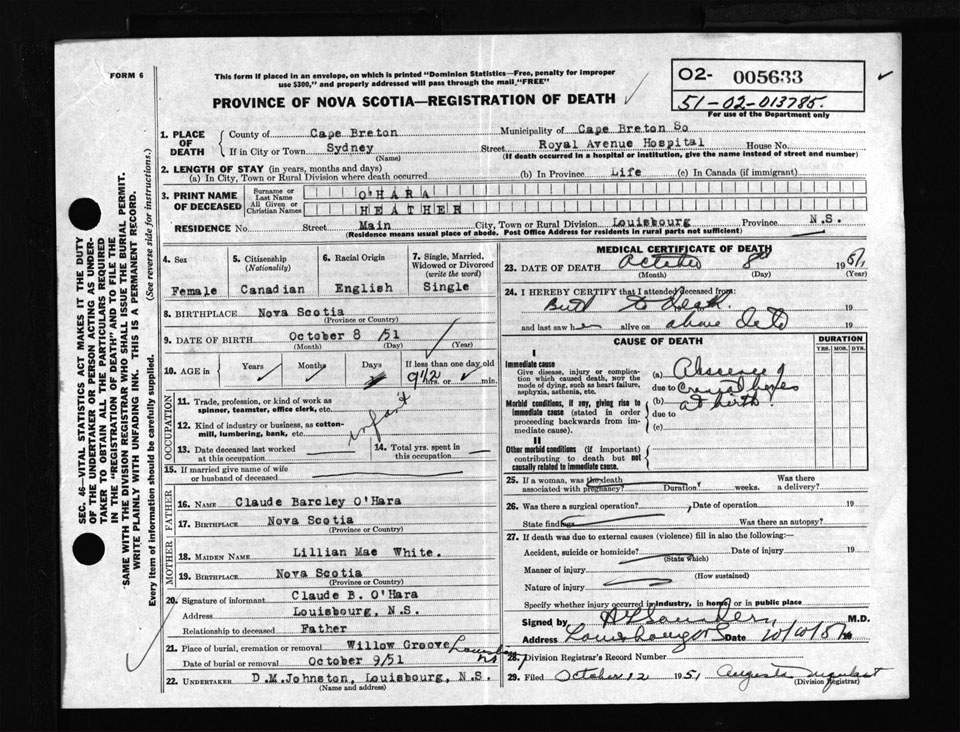 FORM 6
This form if placed in an envelope, on which is printed "Dominion Statistics—Free, penalty for improper
use $300," and properly addressed will pass through the mail "FREE"
PROVINCE OF NOVA SCOTIA—REGISTRATION OF DEATH
02- 005633
51-02-013785.
For use of the Department only
1. PLACE OF DEATH
County of Cape Breton Municipality of Cape Breton So
If in City or Town Sydney Street Royal Avenue Hospital House No.
(Name) (If death occurred in a hospital or institution, give the name instead of street and number)
2. LENGTH OF STAY (in years, months and days)
(a) In City, Town or Rural Division where death occurred (b) In Province Life (c) In Canada (if immigrant)
3. PRINT NAME OF DECEASED
Surname or Last Name O'HARA
All Given or Christian Names HEATHER
RESIDENCE No. Street Main City, Town or Rural Division Louisbourg Province N.S.
(Residence means usual place of abode. Post Office Address for residents in rural parts not sufficient)
4. Sex
Female
5. Citizenship
(Nationality)
Canadian
6. Racial Origin
English
7. Single, Married,
Widowed or Divorced
(write the word)
Single
8. BIRTHPLACE Nova Scotia
(Province or Country)
9. DATE OF BIRTH October 8 /51
(Month) (Day) (Year)
10. AGE in Years Months Days If less than one day old
9 1/2 hrs. or min.
OCCUPATION
11. Trade, profession, or kind of work as
spinner, teamster, office clerk, etc.
12. Kind of industry or business, as cotton-
mill, lumbering, bank, etc.
infant
13. Date deceased last worked
at this occupation
14. Total yrs. spent in
this occupation
15. If married give name of wife
or husband of deceased
FATHER
16. NAME Claude Barcley O'Hara
17. BIRTHPLACE Nova Scotia
(Province or Country)
MOTHER
18. MAIDEN NAME Lillian Mae White.
19. BIRTHPLACE Nova Scotia
(Province or Country)
20. Signature of informant Claude B. O'Hara
Address Louisbourg, N.S.
Relationship to deceased Father
21. Place of burial, cremation or removal Willow Groove
Date of burial or removal October 9/51
22. UNDERTAKER D.M.Johnston, Louisbourg, N.S.
(Name and address)
MEDICAL CERTIFICATE OF DEATH
23. DATE OF DEATH October 8th 1951
(Month) (Day) (Year)
24. I HEREBY CERTIFY that I attended deceased from:
Birth to death. 19
and last saw her alive on above date 19
CAUSE OF DEATH
DURATION
YRS. MOS. DYS.
I
Immediate cause
Give disease, injury or compli-
cation which caused death, NOT the
mode of dying, such as heart failure,
asphyxia, asthenia, etc.
(a) Absence of
due to cranial bones
(b) at birth.
due to
(c)
Morbid conditions, if any, giving rise to
immediate cause (stated in order
proceeding backwards from im-
mediate cause).
II
Other morbid conditions (if important)
contributing to death but not
causally related to immediate cause.
25. If a woman, was the death
associated with pregnancy? Duration weeks. Was there
a delivery?
26. Was there a surgical operation? Date of operation 19
State findings Was there an autopsy?
27. If death was due to external causes (violence) fill in also the following:—
Accident, suicide or homicide? Date of injury 19
(State which)
Manner of injury
(How sustained)
Nature of injury
Specify whether injury occurred in industry, in home, or in public place
Signed by M.D.
Address Louisbourg NS Date 10/10/51 19
28. Division Registrar's Record Number
29. Filed October 12 1951 Augusta
(Division Registrar)
SEC. 46—VITAL STATISTICS ACT MAKES IT THE DUTY
OF THE UNDERTAKER OR PERSON ACTING AS UNDER-
TAKER TO OBTAIN ALL THE PARTICULARS REQUIRED
IN THE "REGISTRATION OF DEATH" AND TO FILE THE
SAME WITH THE DIVISION REGISTRAR WHO SHALL ISSUE THE BURIAL PERMIT.
WRITE PLAINLY WITH UNFADING INK. THIS IS A PERMANENT RECORD.
Every item of information should be carefully supplied. (See reverse side for instructions.)